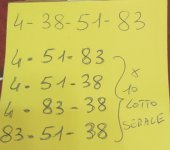 4-38-51-83
4-51-83
4-51-38
4-83-38
83-51-38
X
10
LOTTO
SERALE